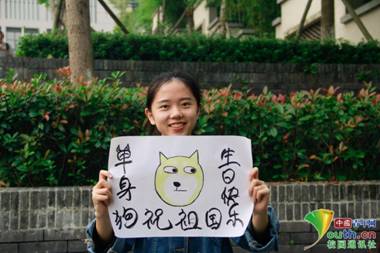 单身狗
祝祖国
生日快乐
中国青年网
youth.cn
校园通讯社